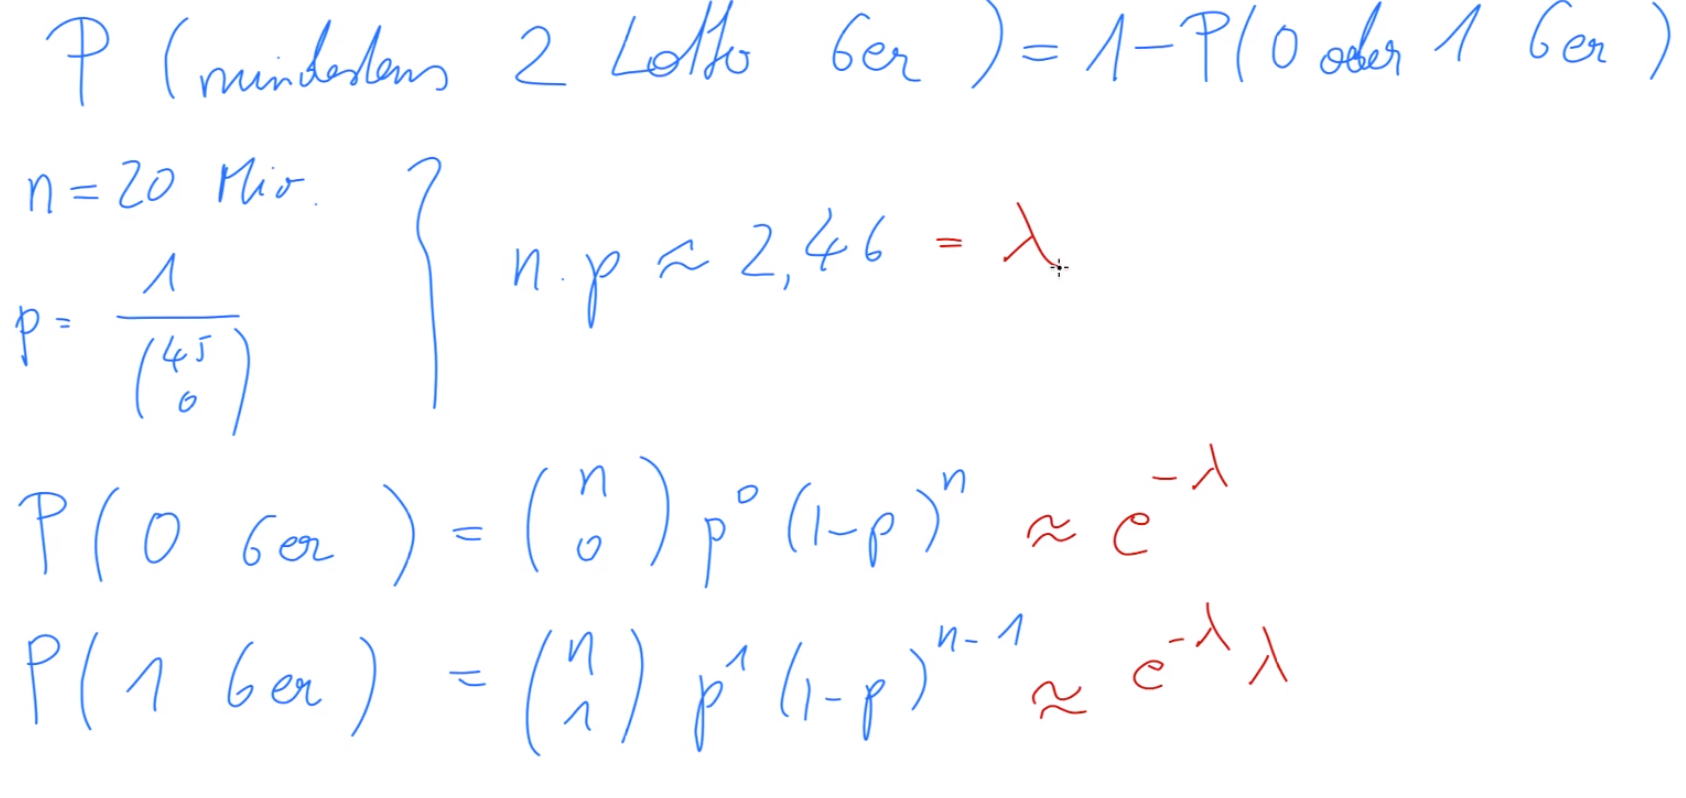 P (mindestens 2 Lotto 6er) = 1 - P(0 oder 1 6er)
n = 20 Mio.
n · p ≈ 2,46 = λ
p = 1 / (45 6)
P(0 6er) = (n 0) p^0 (1-p)^n ≈ e^-λ
P(1 6er) = (n 1) p^1 (1-p)^n-1 ≈ e^-λ λ